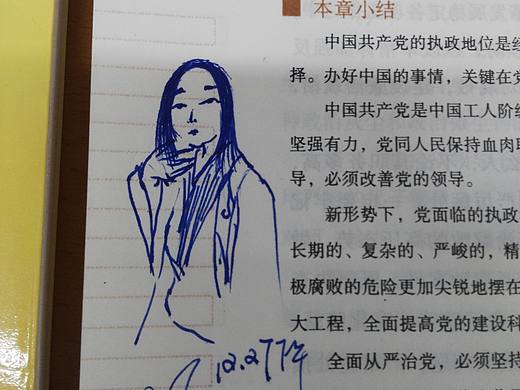 本章小结
中国共产党的执政地位是经
择。办好中国的事情，关键在党
中国共产党是中国工人阶级
坚强有力，党同人民保持血肉联
导，必须改善党的领导。
新形势下，党面临的执政
长期的、复杂的、严峻的，精
极腐败的危险更加尖锐地摆在
大工程，全面提高党的建设科
全面从严治党，必须坚持
12.27